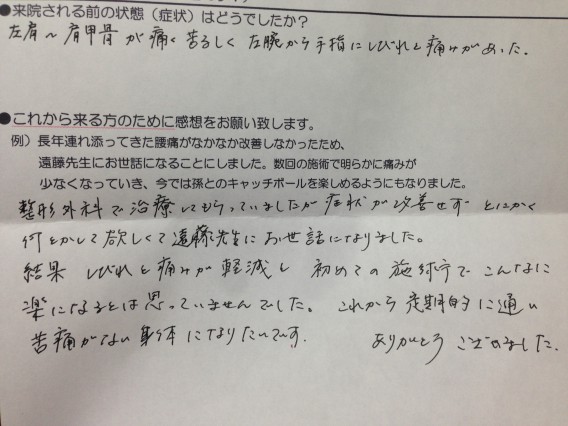 ●来院される前の状態（症状）はどうでしたか？
左肩〜肩甲骨が痛く苦るしく左腕から手指にしびれと痛みがあった。
●これから来る方のために感想をお願い致します。
例）長年連れ添ってきた腰痛がなかなか改善しなかったため、
遠藤先生にお世話になることにしました。数回の施術で明らかに痛みが
少なくなっていき、今では孫とのキャッチボールを楽しめるようにもなりました。
整形外科で治療してもらっていましたが症状が改善せず とにかく
何とかして欲しくて遠藤先生にお世話になりました。
結果 しびれと痛みが軽減し 初めての施術でこんなに
楽になるとは思っていませんでした。これから定期的に通い
苦痛がない身体になりたいです。 ありがとうございました。